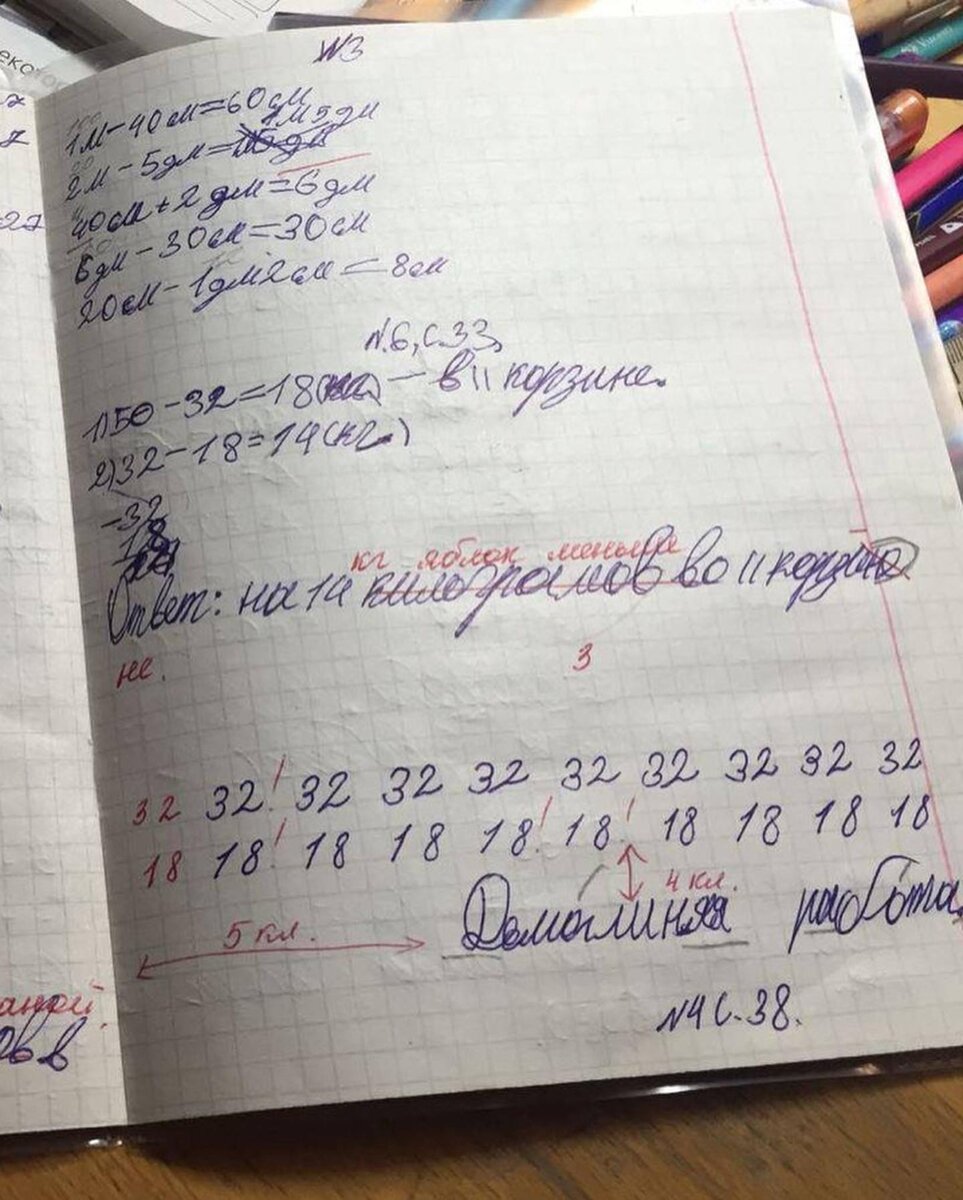 N3
1м-40см=60см
2м-5дм=1м5дм
40см+2дм=6дм
6дм-30см=30см
20см-1дм2см=8см
N.6, с.33,
1)50-32=18(кг.) - в II корзине.
2)32-18=14(кг.)
-32
18
кг яблок меньше
Ответ: на 14 килограмов во II корзин
не.
3
32 32! 32 32 32 32 32 32 32 32
18 18! 18 18 18! 18! 18 18 18 18
4 кл.
5 кл.
Домашняя работа.
N4 с.38.